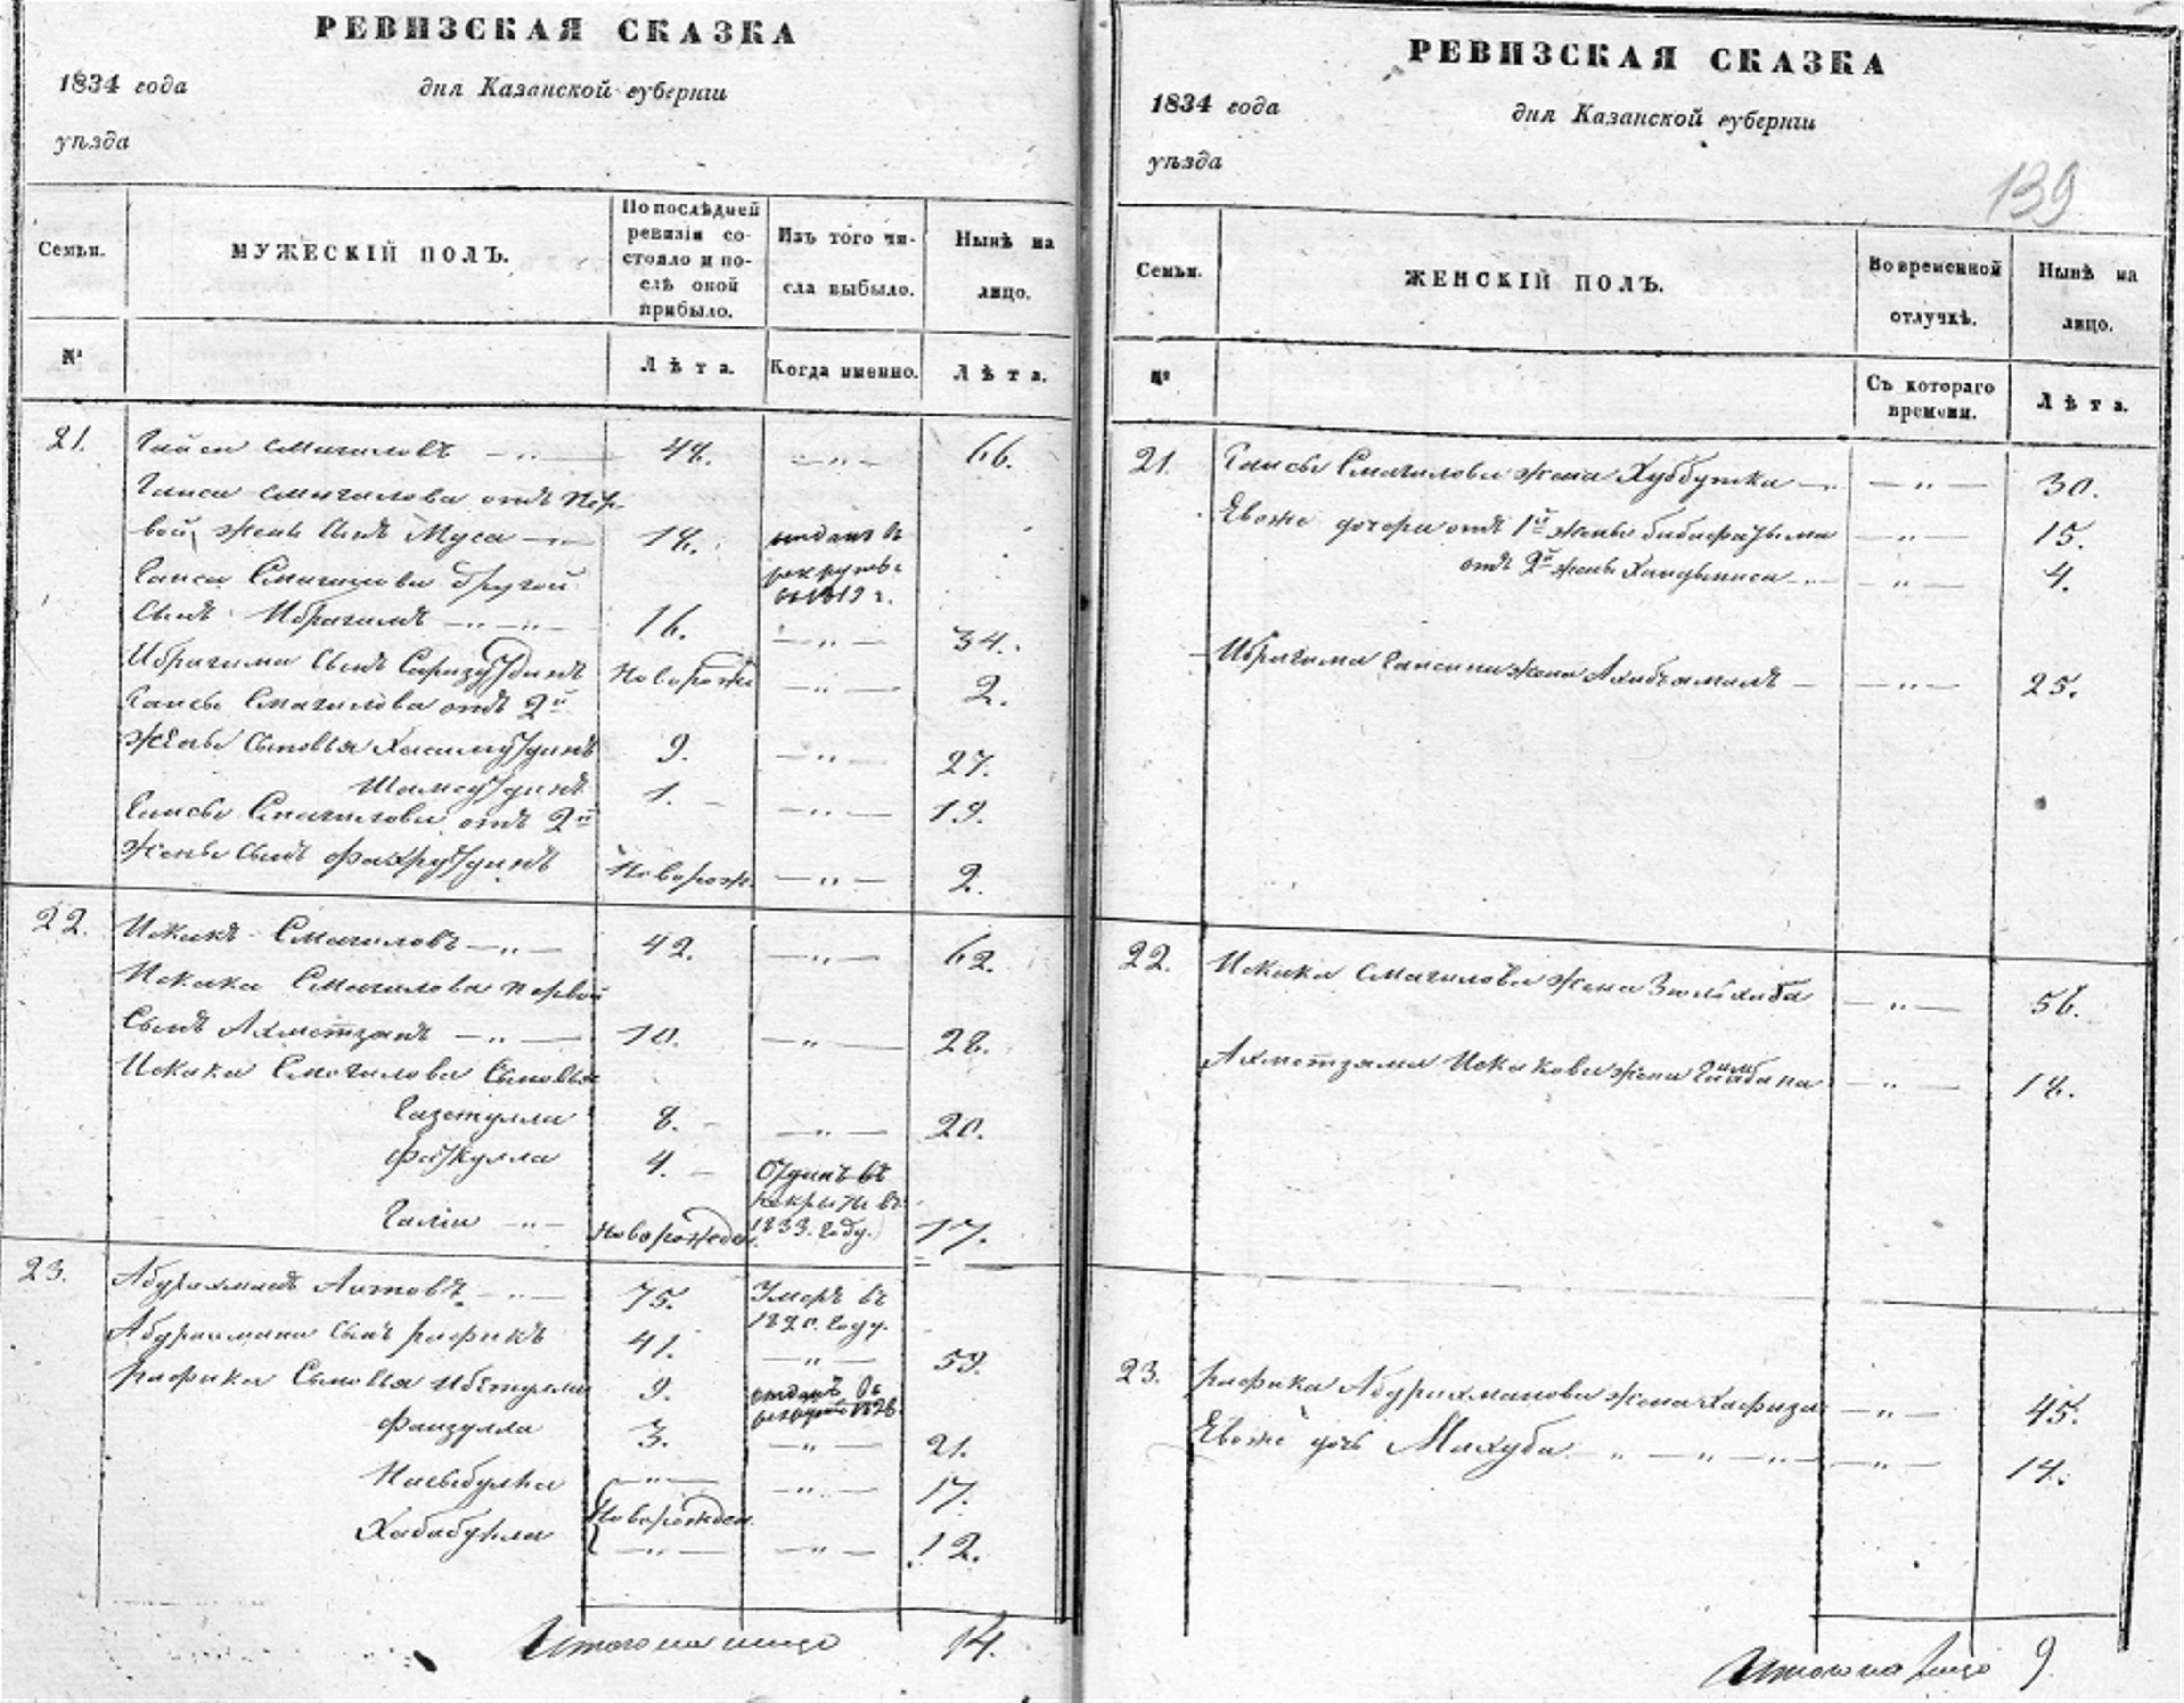 РЕВИЗСКАЯ СКАЗКА
1834 года дня Казанской губерніи
уѣзда
Семьи. МУЖЕСКІЙ ПОЛЪ. По послѣдней ревизіи состояло и послѣ оной прибыло. Изъ того числа выбыло. Нынѣ на лицо.
№ Лѣта. Когда именно. Лѣта.
21. Гайса Смагиловъ 48. 66.
Гайса Смагилова отъ пер-
вой жены сынъ Муса 18. отданъ въ
Гайса Смагилова другой рекруты
сынъ Ибрагимъ 16. 34.
Ибрагима сынъ Сафизуддинъ Новорож 2.
Гайсы Смагилова отъ 2й
жены сыновья Хисамуддинъ 9. 27.
Шамсуддинъ 1. 19.
Гайсы Смагилова отъ 2й
жены сынъ Фахруддинъ Новорож. 2.
22. Искакъ Смагиловъ 42. 62.
Искака Смагилова первой
сынъ Ахметзянъ 10. 28.
Искака Смагилова сыновья
8. 20.
4. Отданъ въ
Галіи Новорожден. 1833. году. 17.
23. Абдрахманъ Аитовъ 75. Умеръ въ
1820. году.
Абдрахмана сынъ Рафикъ 41. 59.
Рафика сыновья 9. отданъ въ
Фаизулла 3. 21.
Насыбулла 17.
Новорожден.
Хабибулла 12.
Итого на лицо 14.
РЕВИЗСКАЯ СКАЗКА
1834 года дня Казанской губерніи
уѣзда
139
Семьи. ЖЕНСКІЙ ПОЛЪ. Во временной отлучкѣ. Нынѣ на лицо.
№ Съ котораго времени. Лѣта.
21. Гайсы Смагилова жена 30.
Евоже дочери отъ 1й жены Бибифатыма 15.
отъ 2й жены 4.
Ибрагима Гайсина жена 25.
22. Искака Смагилова жена 56.
Ахметзяна Искакова жена 18.
23. Рафика Абдрахманова жена Хафиза 45.
Евоже дочь Махуба 14.
Итого на лицо 9.